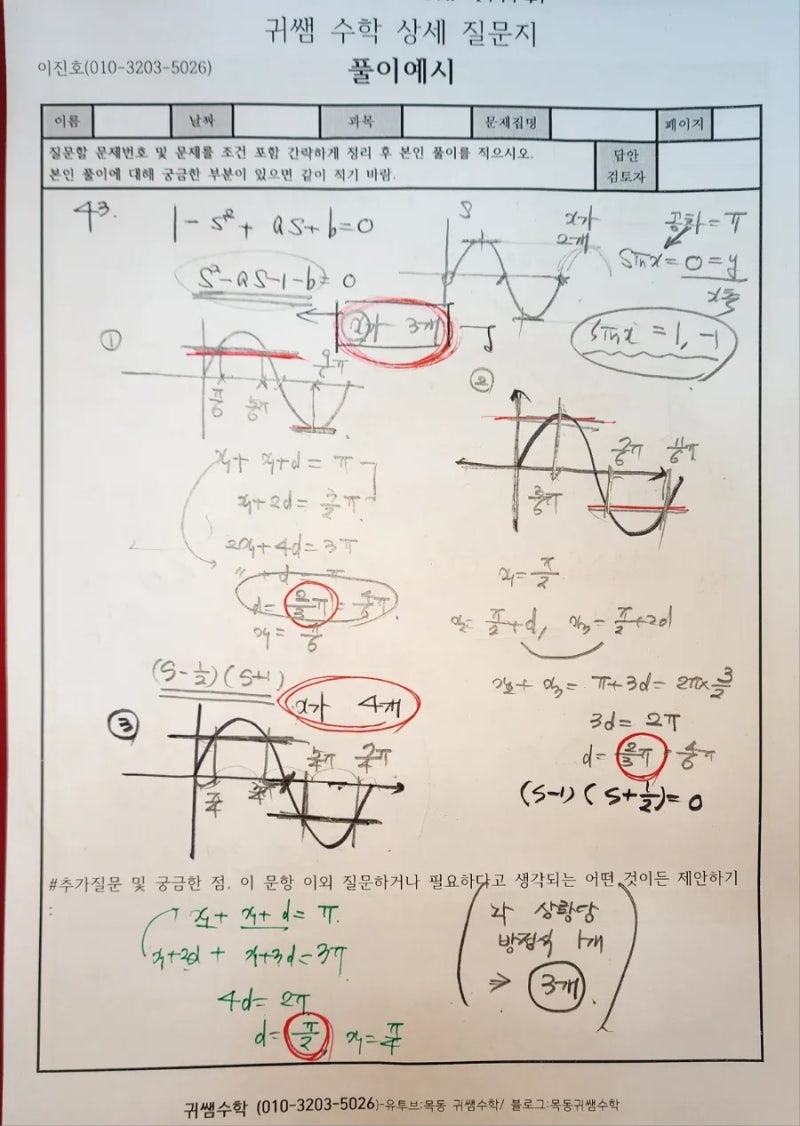 귀쌤 수학 상세 질문지
이진호(010-3203-5026)
풀이예시
이름 날짜 과목 문제집명 페이지
질문할 문제번호 및 문제를 조건 포함 간략하게 정리 후 본인 풀이를 적으시오.
본인 풀이에 대해 궁금한 부분이 있으면 같이 적기 바람.
답안
검토자
43.
1-s²+as+b=0
s²-as-1-b=0
x가
2개
공차=π
sinx=0=y
x축
sinx=1,-1
x가 3개
①
π/6 5/6π 9/6π
x₁+x₁+d=π
x₁+2d=3/2π
2x₁+4d=3π
〃+d=π
d=2/3π=4/6π
x₁=π/6
(s-1/2)(s+1)
②
3/6π 7/6π 11/6π
x₁=π/2
x₂=π/2+d, x₃=π/2+2d
x₂+x₃=π+3d=2π×3/2
3d=2π
d=2/3π=4/6π
(s-1)(s+1/2)=0
x가 4개
③
π/4 3/4π 5/4π 7/4π
#추가질문 및 궁금한 점, 이 문항 이외 질문하거나 필요하다고 생각되는 어떤 것이든 제안하기
:
x₁+x₁+d=π.
x₁+2d+x₁+3d=3π
4d=2π
d=π/2 x₁=π/4
각 상황당
방정식 1개
⇒ 3개.
귀쌤수학 (010-3203-5026)-유투브:목동 귀쌤수학/ 블로그:목동귀쌤수학